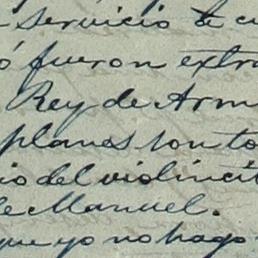 servicio de cu
ó fueron extra
Rey de Arm
planos son to
io del violinci
de Manuel.
que yo no hago